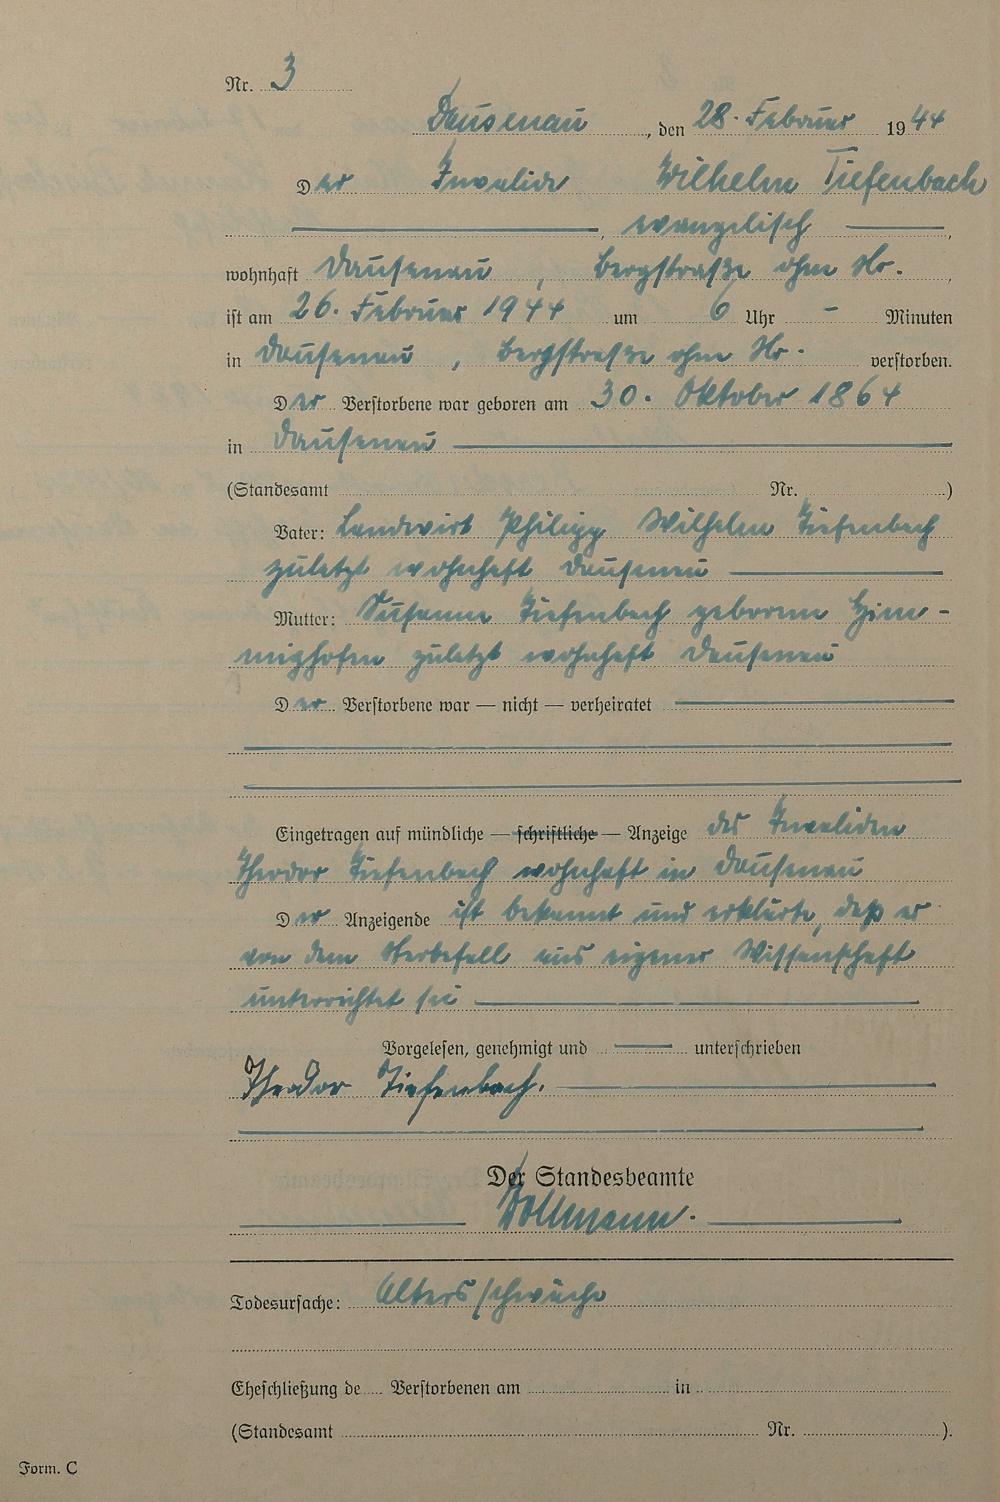 Nr. 3
Dausenau, den 28. Februar 1944
Der Invalide Wilhelm Tiefenbach
, evangelisch ,
wohnhaft Dausenau, Bergstraße ohne Nr.,
ist am 26. Februar 1944 um 6 Uhr - Minuten
in Dausenau, Bergstraße ohne Nr. verstorben.
Der Verstorbene war geboren am 30. Oktober 1864
in Dausenau
(Standesamt Nr. )
Vater: Landwirt Philipp Wilhelm Tiefenbach
zuletzt wohnhaft Dausenau
Mutter: Susanne Tiefenbach geborene Him-
mighofen zuletzt wohnhaft Dausenau
Der Verstorbene war — nicht — verheiratet
Eingetragen auf mündliche — schriftliche — Anzeige des Invaliden
Theodor Tiefenbach wohnhaft in Dausenau
Der Anzeigende ist bekannt und erklärte, daß er
von dem Sterbefall aus eigener Wissenschaft
unterrichtet sei
Vorgelesen, genehmigt und unterschrieben
Theodor Tiefenbach.
Der Standesbeamte
Todesursache: Altersschwäche
Eheschließung de Verstorbenen am in
(Standesamt Nr. ).
Form. C